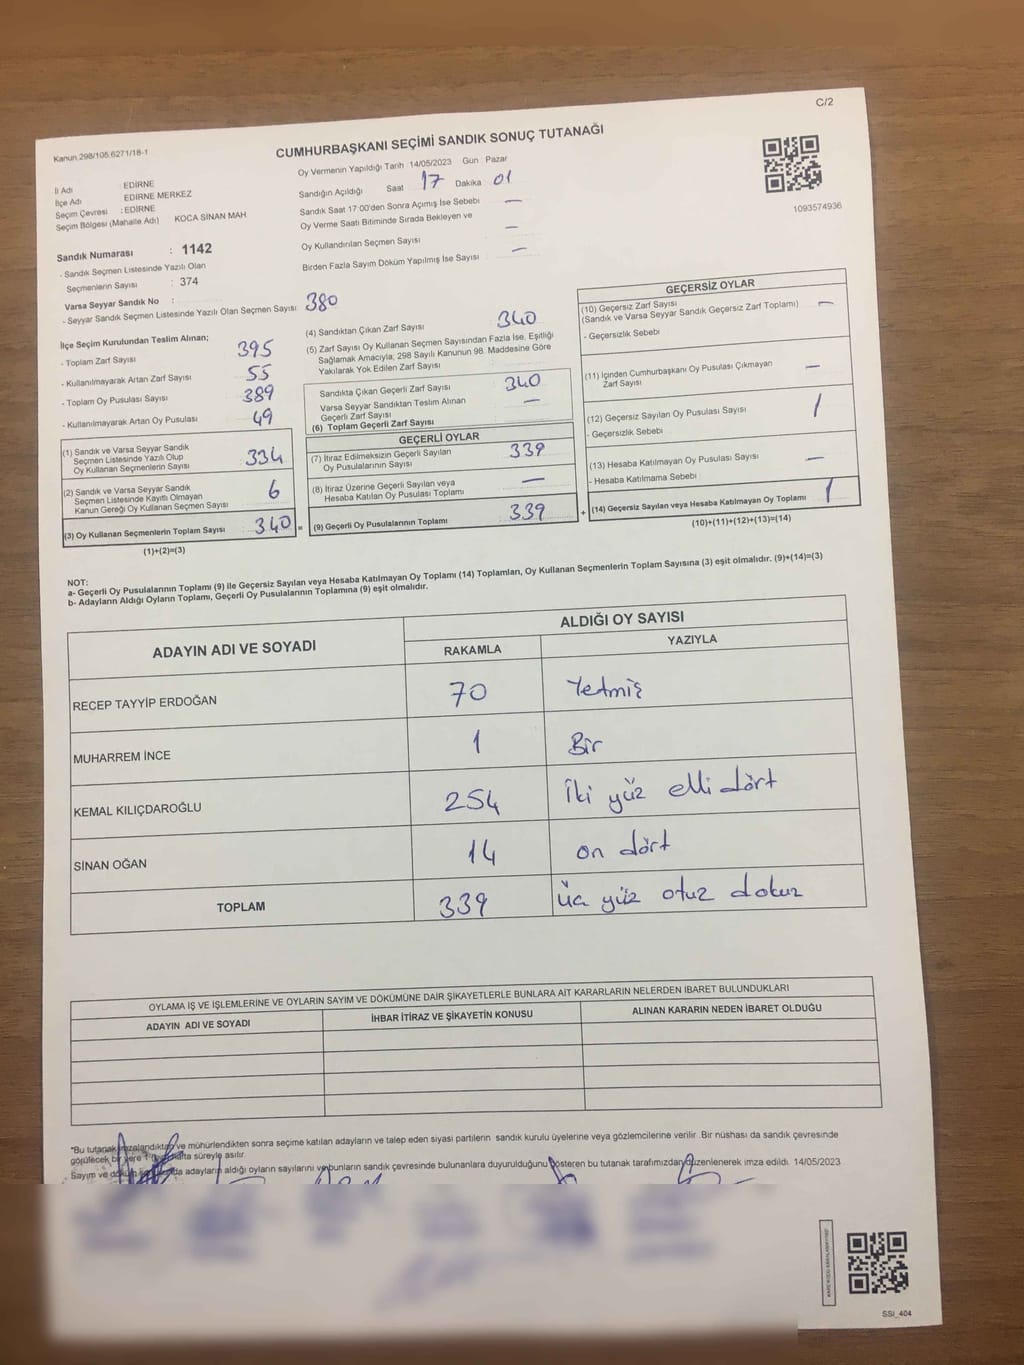 C/2
Kanun 298/105.6271/18-1
CUMHURBAŞKANI SEÇİMİ SANDIK SONUÇ TUTANAĞI
Oy Vermenin Yapıldığı Tarih 14/05/2023 Gün Pazar
İl Adı : EDİRNE
İlçe Adı EDİRNE MERKEZ
Seçim Çevresi : EDİRNE
Seçim Bölgesi (Mahalle Adı) KOCA SİNAN MAH
Sandığın Açıldığı Saat 17 Dakika 01
Sandık Saat 17:00'den Sonra Açımış İse Sebebi —
Oy Verme Saati Bitiminde Sırada Bekleyen ve
Oy Kullandırılan Seçmen Sayısı —
Birden Fazla Sayım Döküm Yapılmış İse Sayısı —
1093574936
Sandık Numarası : 1142
- Sandık Seçmen Listesinde Yazılı Olan
Seçmenlerin Sayısı : 374
Varsa Seyyar Sandık No :
- Seyyar Sandık Seçmen Listesinde Yazılı Olan Seçmen Sayısı 380
İlçe Seçim Kurulundan Teslim Alınan;
- Toplam Zarf Sayısı 395
- Kullanılmayarak Artan Zarf Sayısı 55
- Toplam Oy Pusulası Sayısı 389
- Kullanılmayarak Artan Oy Pusulası 49
(1) Sandık ve Varsa Seyyar Sandık
Seçmen Listesinde Yazılı Olup
Oy Kullanan Seçmenlerin Sayısı 334
(2) Sandık ve Varsa Seyyar Sandık
Seçmen Listesinde Kayıtlı Olmayan
Kanun Gereği Oy Kullanan Seçmen Sayısı 6
(3) Oy Kullanan Seçmenlerin Toplam Sayısı 340 =
(1)+(2)=(3)
(4) Sandıktan Çıkan Zarf Sayısı 340
(5) Zarf Sayısı Oy Kullanan Seçmen Sayısından Fazla İse, Eşitliği
Sağlamak Amacıyla; 298 Sayılı Kanunun 98. Maddesine Göre
Yakılarak Yok Edilen Zarf Sayısı
Sandıkta Çıkan Geçerli Zarf Sayısı 340
Varsa Seyyar Sandıktan Teslim Alınan
Geçerli Zarf Sayısı —
(6) Toplam Geçerli Zarf Sayısı
GEÇERLİ OYLAR
(7) İtiraz Edilmeksizin Geçerli Sayılan
Oy Pusulalarının Sayısı 339
(8) İtiraz Üzerine Geçerli Sayılan veya
Hesaba Katılan Oy Pusulası Toplamı —
(9) Geçerli Oy Pusulalarının Toplamı 339 +
GEÇERSİZ OYLAR
(10) Geçersiz Zarf Sayısı
(Sandık ve Varsa Seyyar Sandık Geçersiz Zarf Toplamı) —
- Geçersizlik Sebebi
(11) İçinden Cumhurbaşkanı Oy Pusulası Çıkmayan
Zarf Sayısı —
(12) Geçersiz Sayılan Oy Pusulası Sayısı 1
- Geçersizlik Sebebi
(13) Hesaba Katılmayan Oy Pusulası Sayısı —
- Hesaba Katılmama Sebebi
(14) Geçersiz Sayılan veya Hesaba Katılmayan Oy Toplamı 1
(10)+(11)+(12)+(13)=(14)
NOT:
a- Geçerli Oy Pusulalarının Toplamı (9) ile Geçersiz Sayılan veya Hesaba Katılmayan Oy Toplamı (14) Toplamları, Oy Kullanan Seçmenlerin Toplam Sayısına (3) eşit olmalıdır. (9)+(14)=(3)
b- Adayların Aldığı Oyların Toplamı, Geçerli Oy Pusulalarının Toplamına (9) eşit olmalıdır.
ADAYIN ADI VE SOYADI
ALDIĞI OY SAYISI
RAKAMLA YAZIYLA
RECEP TAYYİP ERDOĞAN 70 Yetmiş
MUHARREM İNCE 1 Bir
KEMAL KILIÇDAROĞLU 254 İki yüz elli dört
SİNAN OĞAN 14 on dört
TOPLAM 339 üç yüz otuz dokuz
OYLAMA İŞ VE İŞLEMLERİNE VE OYLARIN SAYIM VE DÖKÜMÜNE DAİR ŞİKAYETLERLE BUNLARA AİT KARARLARIN NELERDEN İBARET BULUNDUKLARI
ADAYIN ADI VE SOYADI İHBAR İTİRAZ VE ŞİKAYETİN KONUSU ALINAN KARARIN NEDEN İBARET OLDUĞU
*Bu tutanak imzalandıktan ve mühürlendikten sonra seçime katılan adayların ve talep eden siyasi partilerin sandık kurulu üyelerine veya gözlemcilerine verilir. Bir nüshası da sandık çevresinde
görülecek bir yere 1 hafta süreyle asılır.
Sayım ve adayların aldığı oyların sayılarını ve bunların sandık çevresinde bulunanlara duyurulduğunu gösteren bu tutanak tarafımızdan düzenlenerek imza edildi. 14/05/2023
SSI_404